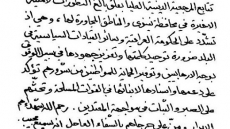 تتابع المرجعية الدينية العليا بقلق بالغ التطورات الأمنية
الاخيرة في محافظة نينوى والمناطق المجاورة لها وهي اذ
تشدد على الحكومة العراقية وسائر القيادات السياسية في
البلد ضرورة توحيد كلمتها وتعزيز جهودها في سبيل الوقوف
بوجه الارهابيين وتوفير الحماية للمواطنين من شرورهم تؤكد
على دعمها واسنادها لابنائها في القوات المسلحة وتحثهم
على الصبر والثبات في مواجهة المعتدين . رحم الله شهداءهم
الابرار ومنّ على جرحاهم بالشفاء العاجل انه سميع مجيب